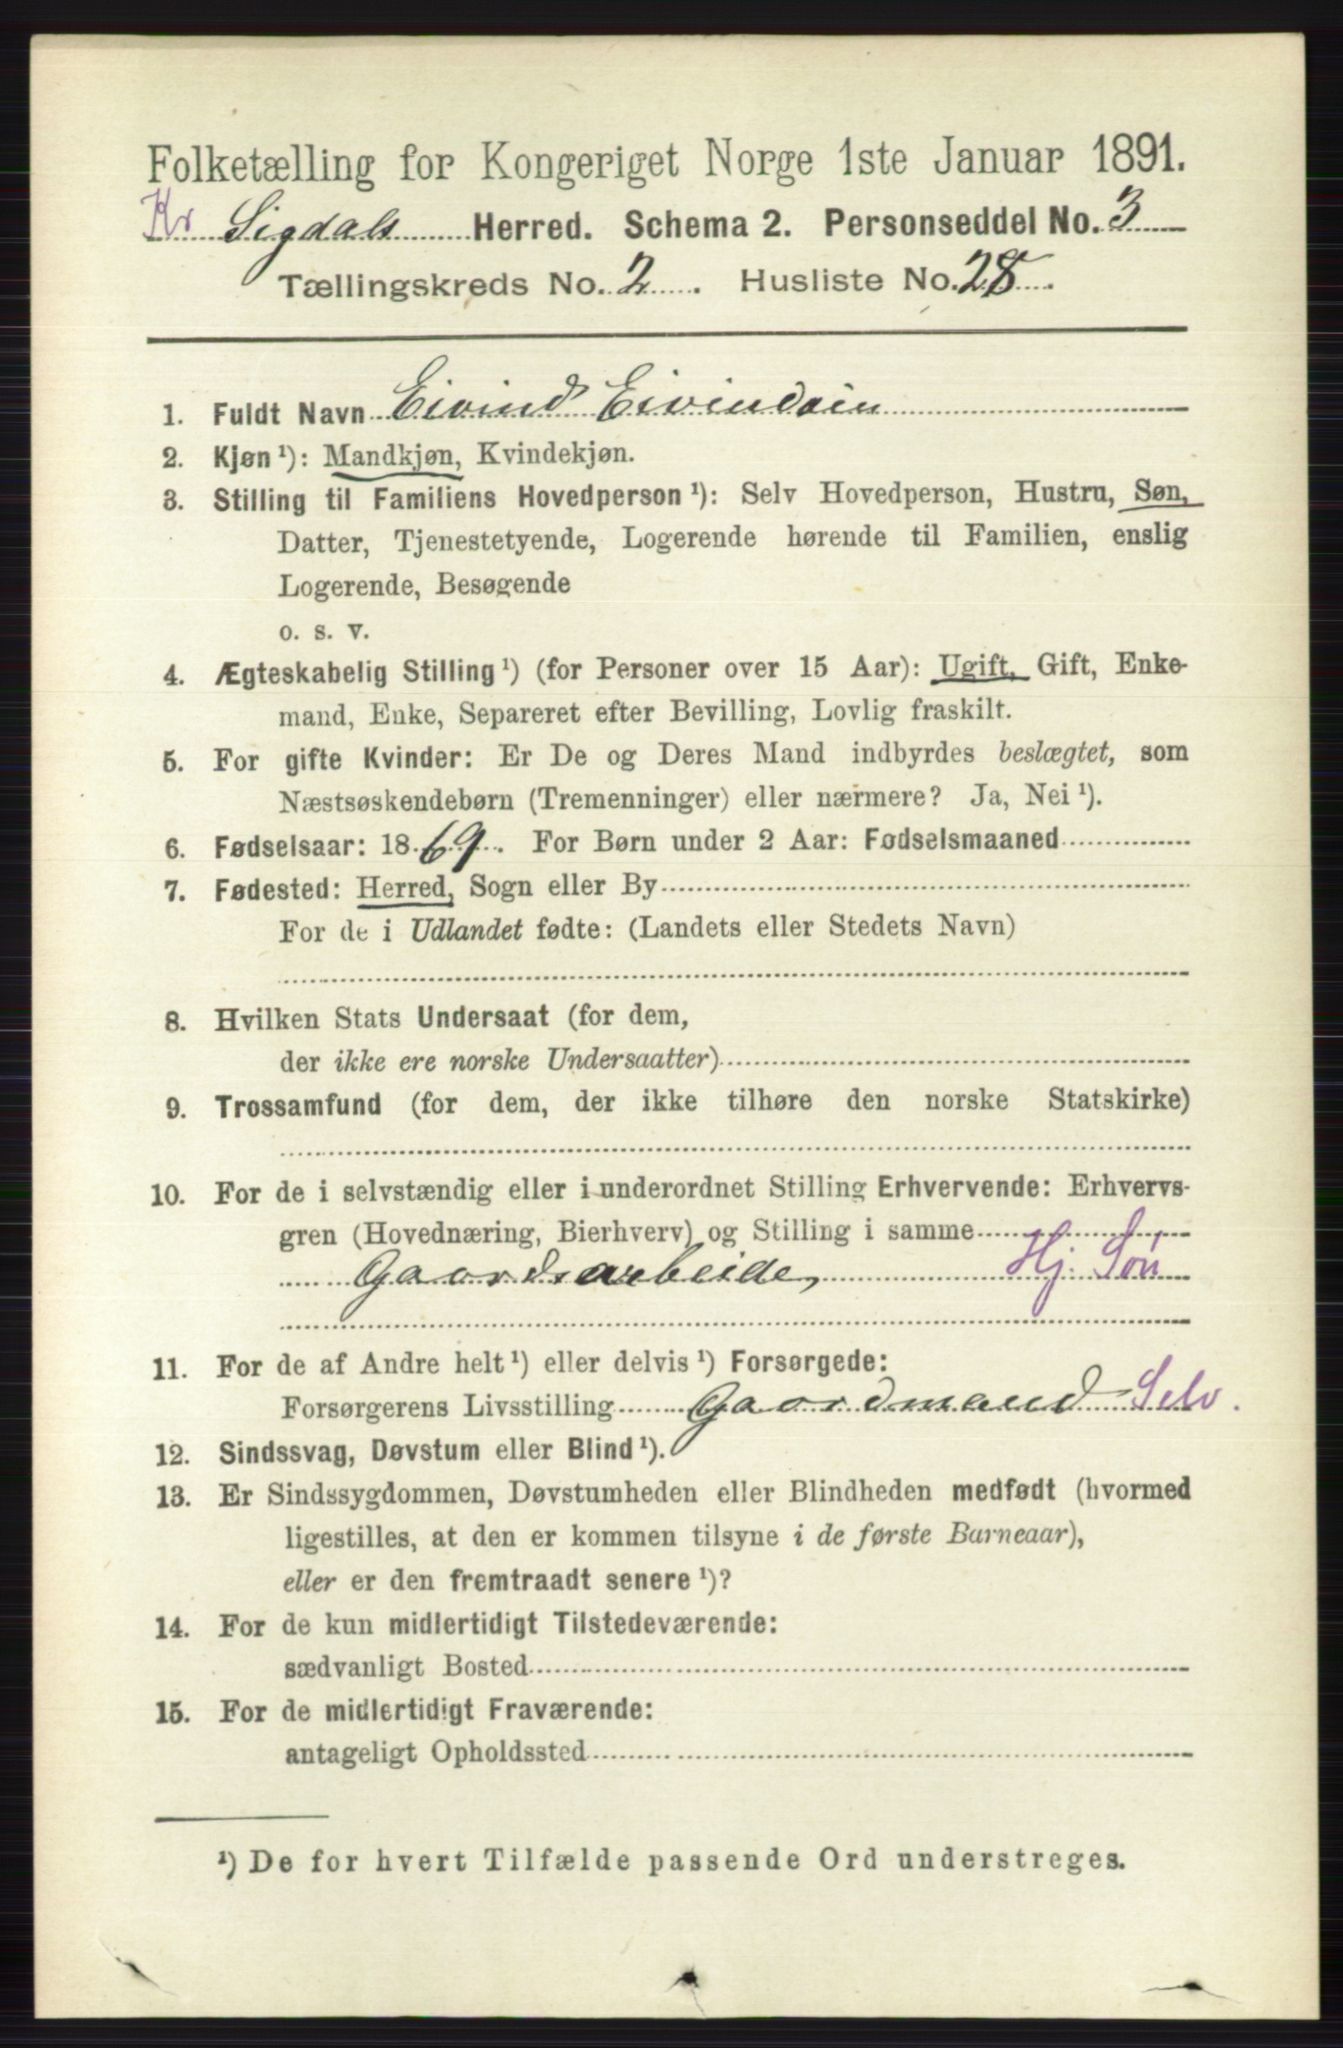 Folketælling for Kongeriget Norge 1ste Januar 1891.
Kr Sigdals Herred. Schema 2. Personseddel No. 3
Tællingskreds No. 2. Husliste No. 28.
1. Fuldt Navn Eivind Eivindsen
2. Kjøn ¹): Mandkjøn, Kvindekjøn.
3. Stilling til Familiens Hovedperson ¹): Selv Hovedperson, Hustru, Søn,
Datter, Tjenestetyende, Logerende hørende til Familien, enslig
Logerende, Besøgende
o. s. v.
4. Ægteskabelig Stilling ¹) (for Personer over 15 Aar): Ugift, Gift, Enke-
mand, Enke, Separeret efter Bevilling, Lovlig fraskilt.
5. For gifte Kvinder: Er De og Deres Mand indbyrdes beslægtet, som
Næstsøskendebørn (Tremenninger) eller nærmere? Ja, Nei ¹).
6. Fødselsaar: 1869. For Børn under 2 Aar: Fødselsmaaned
7. Fødested: Herred, Sogn eller By
For de i Udlandet fødte: (Landets eller Stedets Navn)
8. Hvilken Stats Undersaat (for dem,
der ikke ere norske Undersaatter)
9. Trossamfund (for dem, der ikke tilhøre den norske Statskirke)
10. For de i selvstændig eller i underordnet Stilling Erhvervende: Erhvervs-
gren (Hovednæring, Bierhverv) og Stilling i samme
Gaardsarbeide, Hj. Søn
11. For de af Andre helt ¹) eller delvis ¹) Forsørgede:
Forsørgerens Livsstilling Gaardmand Selv.
12. Sindssvag, Døvstum eller Blind ¹).
13. Er Sindssygdommen, Døvstumheden eller Blindheden medfødt (hvormed
ligestilles, at den er kommen tilsyne i de første Barneaar),
eller er den fremtraadt senere ¹)?
14. For de kun midlertidigt Tilstedeværende:
sædvanligt Bosted
15. For de midlertidigt Fraværende:
antageligt Opholdssted
¹) De for hvert Tilfælde passende Ord understreges.